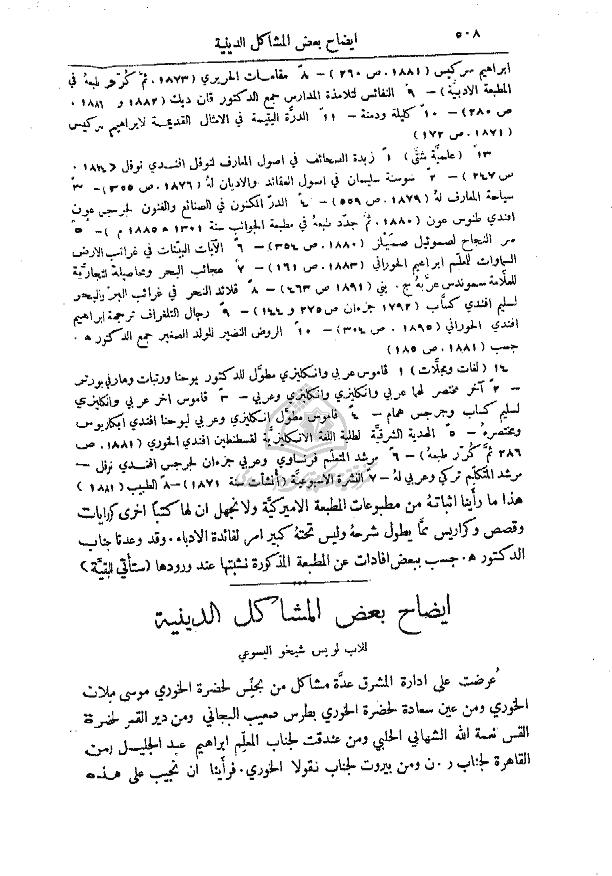 ٥٠٨ ايضاح بعض المشاكل الدينية
ابراهيم سركيس (١٨٨١. ص ٢٦٠) – ٨ً مقامات الحريري (١٨٧٣. ثمَّ كُرّر طبعهُ في
المطبعة الادبيَّة) – ٩ً النفائس لتلامذة المدارس جمع الدكتور ڤان ديك (١٨٨٢ و ١٨٨٦.
ص ٢٨٠) – ١٠ً كليلة ودمنة – ١١ً الدرَّة اليتيمة في الامثال القديمة لابراهيم سركيس
(١٨٧١. ص ١٧٢)
١٣ً (علميَّة شتَّى) ١ً زبدة الصحائف في اصول المعارف لنوفل افندي نوفل (١٨٧٤.
ص ٢٤٧) – ٢ً سوسنة سليمان في اصول العقائد والاديان لهُ (١٨٧٦. ص ٣٥٥) – ٣ً
سياحة المعارف لهُ (١٨٧٩. ص ٥٥٩) – ٤ً الدرّ المكنون في الصنائع والفنون لجرجس عون
افندي طنوس عون (١٨٨٠. ثمَّ جدّد طبعهُ في مطبعة الجوائب سنة ١٣٠١ ه ١٨٨٥ م) – ٥ً
سر النجاح لصموئيل صميلز (١٨٨٠. ص ٣٥٤) – ٦ً الآيات البينات في غرائب الارض
والسماوات للمعلّم ابراهيم الحوراني (١٨٨٣. ص ١٦١) – ٧ً عجائب البحر ومحاصيلهُ التجاريَّة
للعلَّامة سموندس عرَّبهُ ج. بني (١٨٩١ ص ٤٦٣) – ٨ً قلائد النحر في غرائب البرّ والبحر
لسليم افندي كسَّاب (١٧٩٢ جزءان ص ٢٧٥ و ١٤٤) – ٩ً رجال التلغراف ترجمة ابراهيم
افندي الحوراني (١٨٩٥. ص ٣٠٤) – ١٠ً الروض النضير للولد الصغير جمع الدكتور ه.
جسب (١٨٨١. ص ١٨٥)
١٤ً (لغات ومجلَّات) ١ً قاموس عربي وانكليزي مطوَّل للدكتور يوحنا ورتبات وهارفي بورتر
– ٢ً آخر مختصر لهما عربي وانكليزي وانكليزي وعربي – ٣ً قاموس اخر عربي وانكليزي
لسليم كساب وجرجس همام – ٤ً قاموس مطوَّل إنكليزي وعربي ليوحنا افندي ابكاريوس
ومختصرهُ – ٥ً الهدية الشرقيَّة لطلبة اللغة الانكليزيَّة لقسطنطين افندي الخوري (١٨٨١. ص
٢٨٦ ثمَّ كُرّر طبعهُ) – ٦ً مرشد المتعلّم فرنساوي وعربي جزءان لجرجس افندي نوفل –
مرشد المتكلّم تركي وعربي لهُ – ٧ً النشرة الاسبوعيَّة (أُنشأت سنة ١٨٧١) – ٨ً الطبيب (١٨٨١)
هذا ما رأَينا اثباتهُ من مطبوعات المطبعة الاميركيَّة ولا نجهل ان لها كتبًا اخرى كروايات
وقصص وكراريس ممَّا يطول شرحهُ وليس تحتهُ كبير امر لفائدة الادباء. وقد وعدنا جناب
الدكتور ه. جسب ببعض افادات عن المطبعة المذكورة نثبتها عند ورودها (ستأتي البقيَّة)
ايضاح بعض المشاكل الدينية
للاب لويس شيخو اليسوعي
عُرضت على ادارة المشرق عدَّة مشاكل من بجنّس لحضرة الخوري موسى ميلات
الخوري ومن عين سعادة لحضرة الخوري بطرس صعيب البجاني ومن دير القمر لحضرة
القس نعمة الله الشهابي الحلبي ومن عندقت لجناب المعلّم ابراهيم عبد الجليل ومن
القاهرة لجناب ر. ن ومن بيروت لجناب نقولا الخوري. فرأَينا ان نجيب على هذه